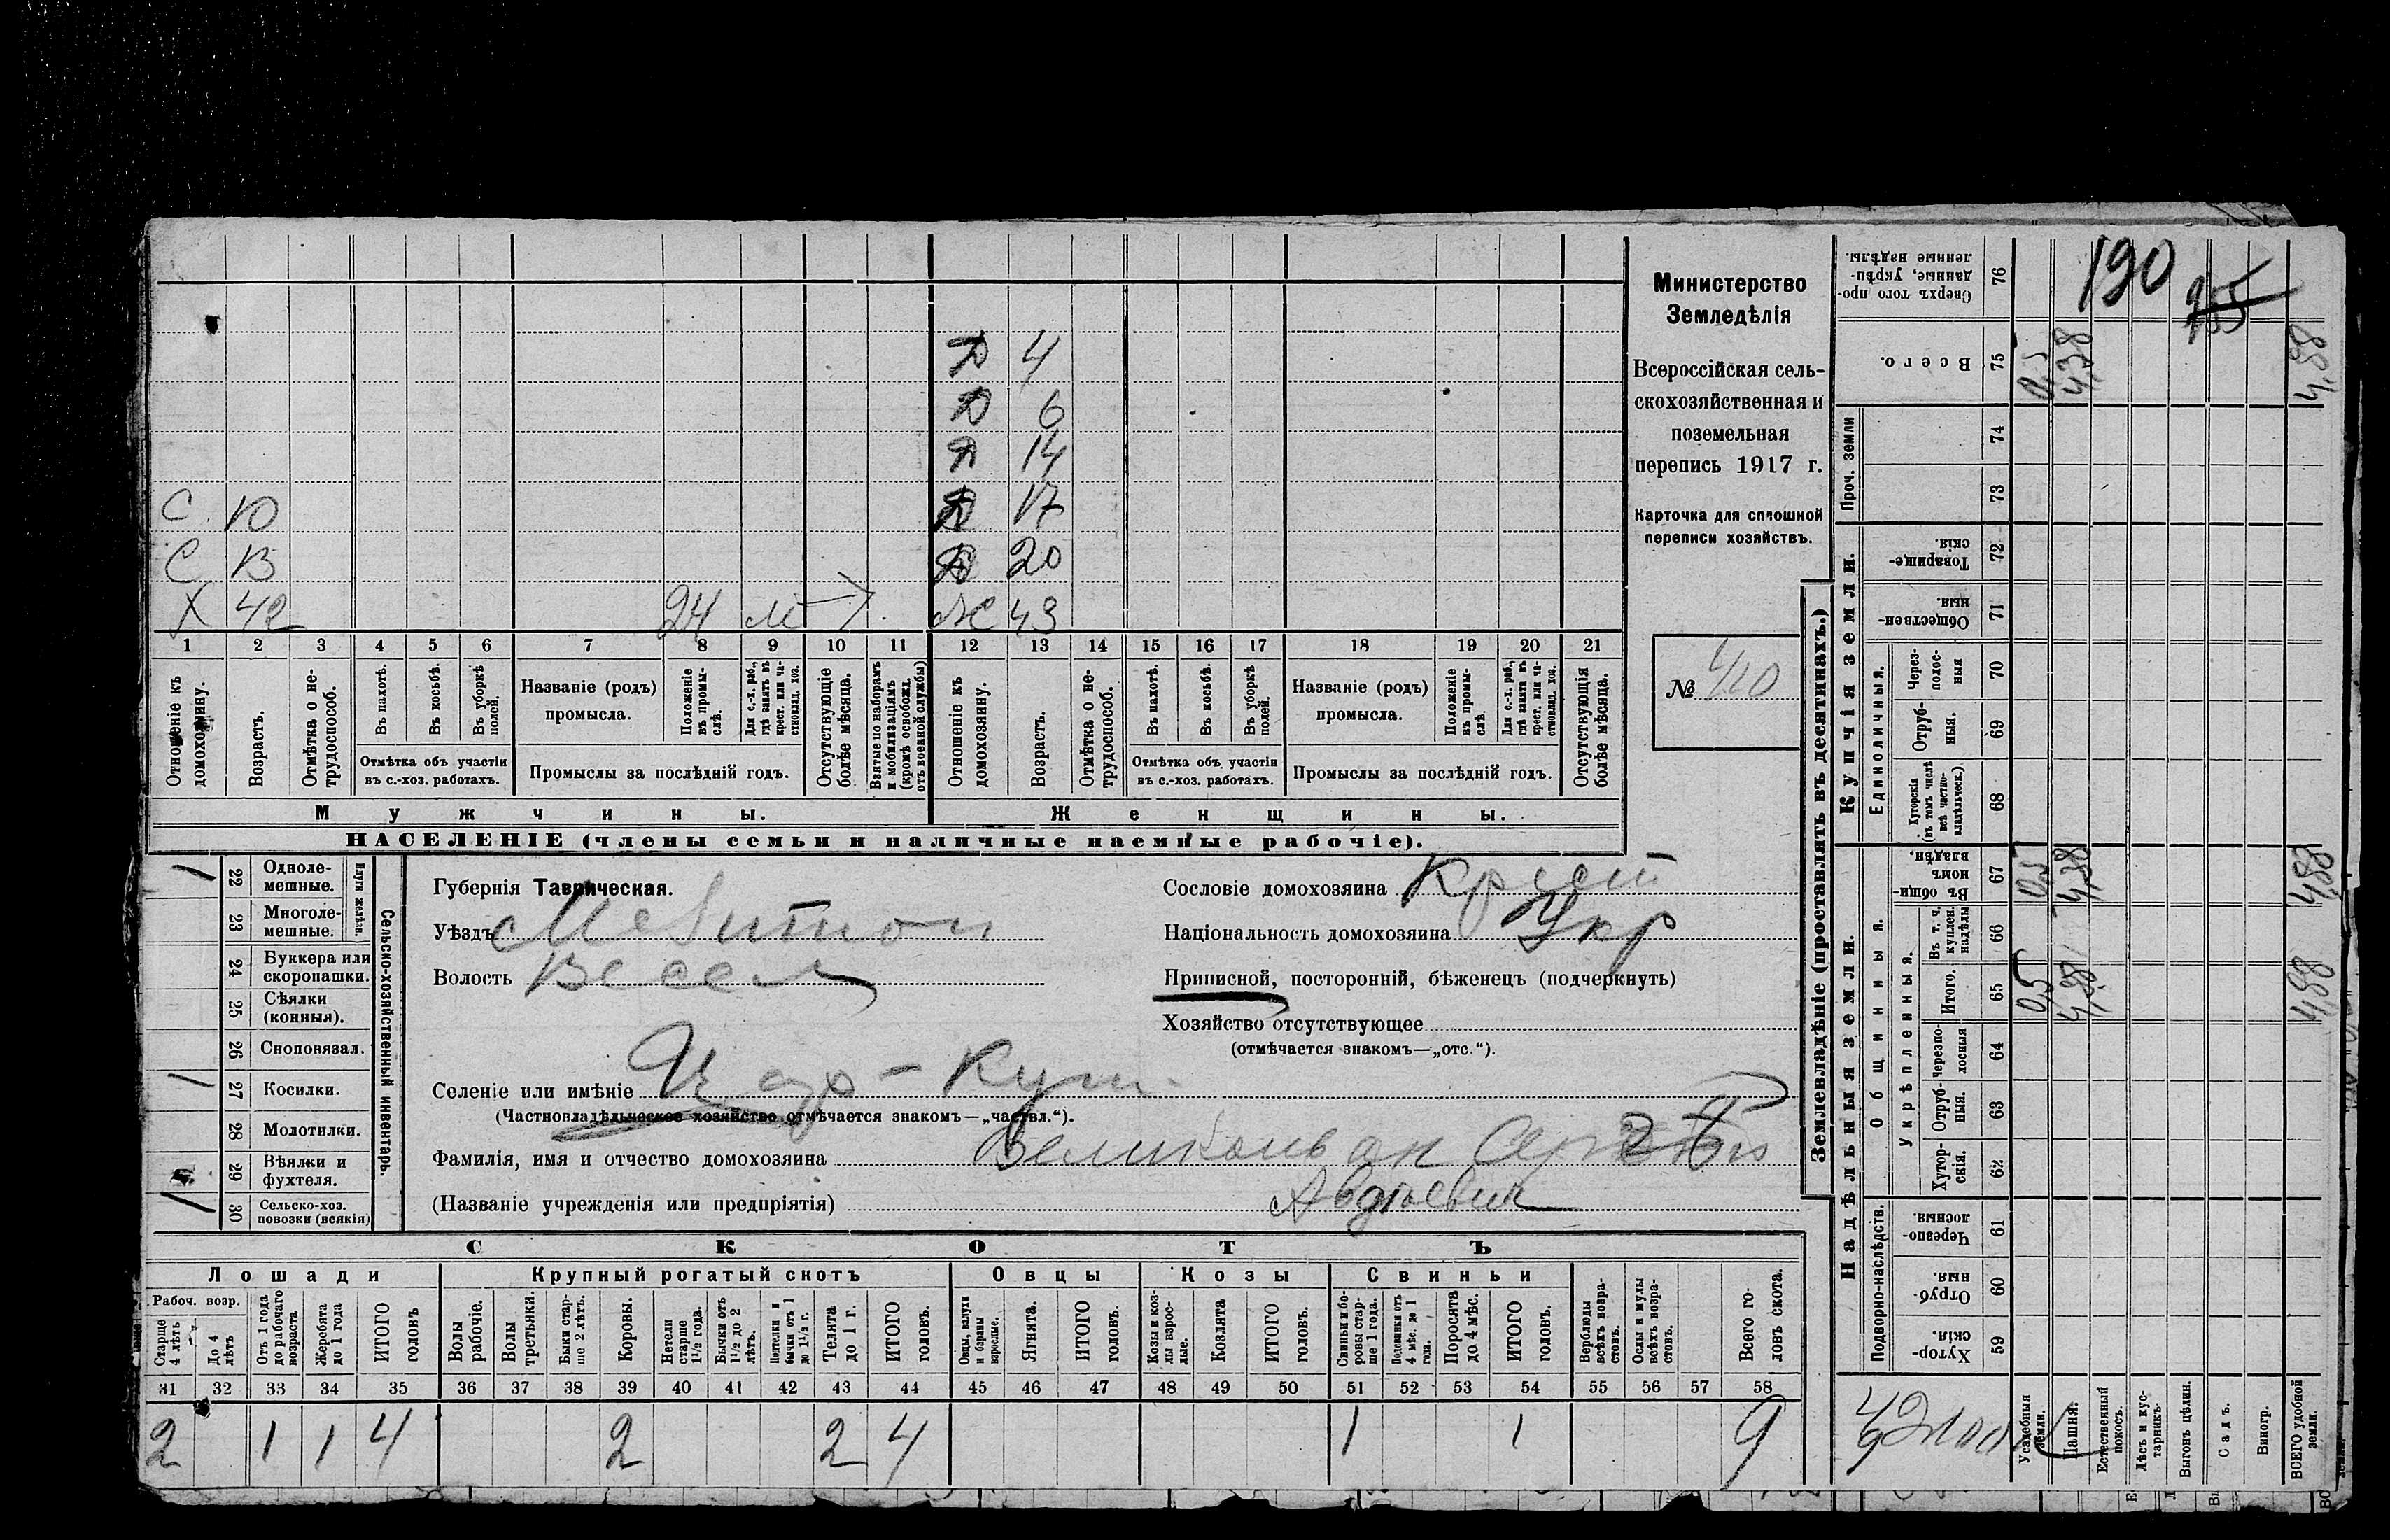 Министерство
Земледѣлія
Всероссійская сель-
скохозяйственная и
поземельная
перепись 1917 г.
Карточка для сплошной
переписи хозяйствъ.
№ 410
Д 4
Д 6
Д 14
С 10 Д 17
С 13 Д 20
Х 42 24 Ж 43
1 2 3 4 5 6 7 8 9 10 11 12 13 14 15 16 17 18 19 20 21
Отношеніе къ домохозяину.
Возрастъ.
Отмѣтка о не-трудоспособ.
Въ пахотѣ.
Въ косьбѣ.
Въ уборкѣ полей.
Отмѣтка объ участіи
въ с.-хоз. работахъ.
Названіе (родъ)
промысла.
Положеніе въ промы-слѣ.
Для с.-х. раб., гдѣ занятъ въ крест. или ча-стновлад. хоз.
Промыслы за послѣдній годъ.
Отсутствующіе болѣе мѣсяца.
Взятые по наборамъ и мобилизаціямъ (кромѣ освобожд. отъ военной службы)
Отношеніе къ домохозяину.
Возрастъ.
Отмѣтка о не-трудоспособ.
Въ пахотѣ.
Въ косьбѣ.
Въ уборкѣ полей.
Отмѣтка объ участіи
въ с.-хоз. работахъ.
Названіе (родъ)
промысла.
Положеніе въ промы-слѣ.
Для с.-х. раб., гдѣ занята въ крест. или ча-стновлад. хоз.
Промыслы за послѣдній годъ.
Отсутствующія болѣе мѣсяца.
Мужчины.
Женщины.
НАСЕЛЕНІЕ (члены семьи и наличные наемные рабочіе).
22 Одноле-мешные.
23 Многоле-мешные.
Плуги желѣзн.
24 Буккера или скоропашки.
25 Сѣялки (конныя).
26 Сноповязал.
27 Косилки.
28 Молотилки.
29 Вѣялки и фухтеля.
30 Сельско-хоз. повозки (всякія)
Сельско-хозяйственный инвентарь.
Губернія Таврическая.
Уѣздъ Мелитоп
Волость Весел
Селеніе или имѣніе
(Частновладѣльческое хозяйство отмѣчается знакомъ—„частвл.“).
Фамилія, имя и отчество домохозяина
(Названіе учрежденія или предпріятія) Авдѣевич
Сословіе домохозяина Крест
Національность домохозяина Укр
Приписной, посторонній, бѣженецъ (подчеркнуть)
Хозяйство отсутствующее
(отмѣчается знакомъ—„отс.“).
СКОТЪ
Лошади
Крупный рогатый скотъ
Овцы
Козы
Свиньи
Рабоч. возр.
Старше 4 лѣтъ
До 4 лѣтъ
Отъ 1 года до рабочаго возраста
Жеребята до 1 года
ИТОГО головъ
Волы рабочіе.
Волы третьяки.
Быки стар-ше 2 лѣтъ.
Коровы.
Нетели старше 1½ года.
Бычки отъ 1½ до 2 лѣтъ.
Подтелки и бычки отъ 1 до 1½ г.
Телята до 1 г.
ИТОГО головъ.
Овцы, валухи и бараны взрослые.
Ягнята.
ИТОГО головъ.
Козы и коз-лы взрос-лые.
Козлята
ИТОГО головъ.
Свиньи и бо-ровы стар-ше 1 года.
Подсвинки отъ 4 мѣс. до 1 года.
Поросята до 4 мѣс.
ИТОГО головъ.
Верблюды всѣхъ возра-стовъ.
Ослы и мулы всѣхъ возра-стовъ.
Всего го-ловъ скота.
31 32 33 34 35 36 37 38 39 40 41 42 43 44 45 46 47 48 49 50 51 52 53 54 55 56 57 58
2 1 1 4 2 2 4 1 1 9
Землевладѣніе (проставлять въ десятинахъ.)
Надѣльныя земли.
Купчія земли.
Проч. земли
Подворно-наслѣдств.
Общинныя.
Укрѣпленныя.
Единоличныя.
Хутор-скія. 59
Отруб-ныя. 60
Черезпо-лосныя 61
Хутор-скія. 62
Отруб-ныя. 63
Черезпо-лосныя 64
Итого. 65
Въ т. ч. куплен. надѣлы 66
Въ общин-номъ владѣн. 67
Хуторскія (въ томъ числѣ всѣ частно-владѣльческ.) 68
Отруб-ныя. 69
Через-полос-ныя 70
Обществен-ныя. 71
Товарище-скія. 72
73
74
Всего. 75
Сверхъ того про-данные, укрѣп-ленные надѣлы. 76
Усадебныя земли.
Пашня.
Естественный покосъ.
Лѣсъ и кус-тарникъ.
Выгонъ цѣлин.
Садъ.
Виногр.
ВСЕГО удобной земли.
190
0,5 4,38 4,88
0,5 4,38 4,88
0,5 4,38 4,88